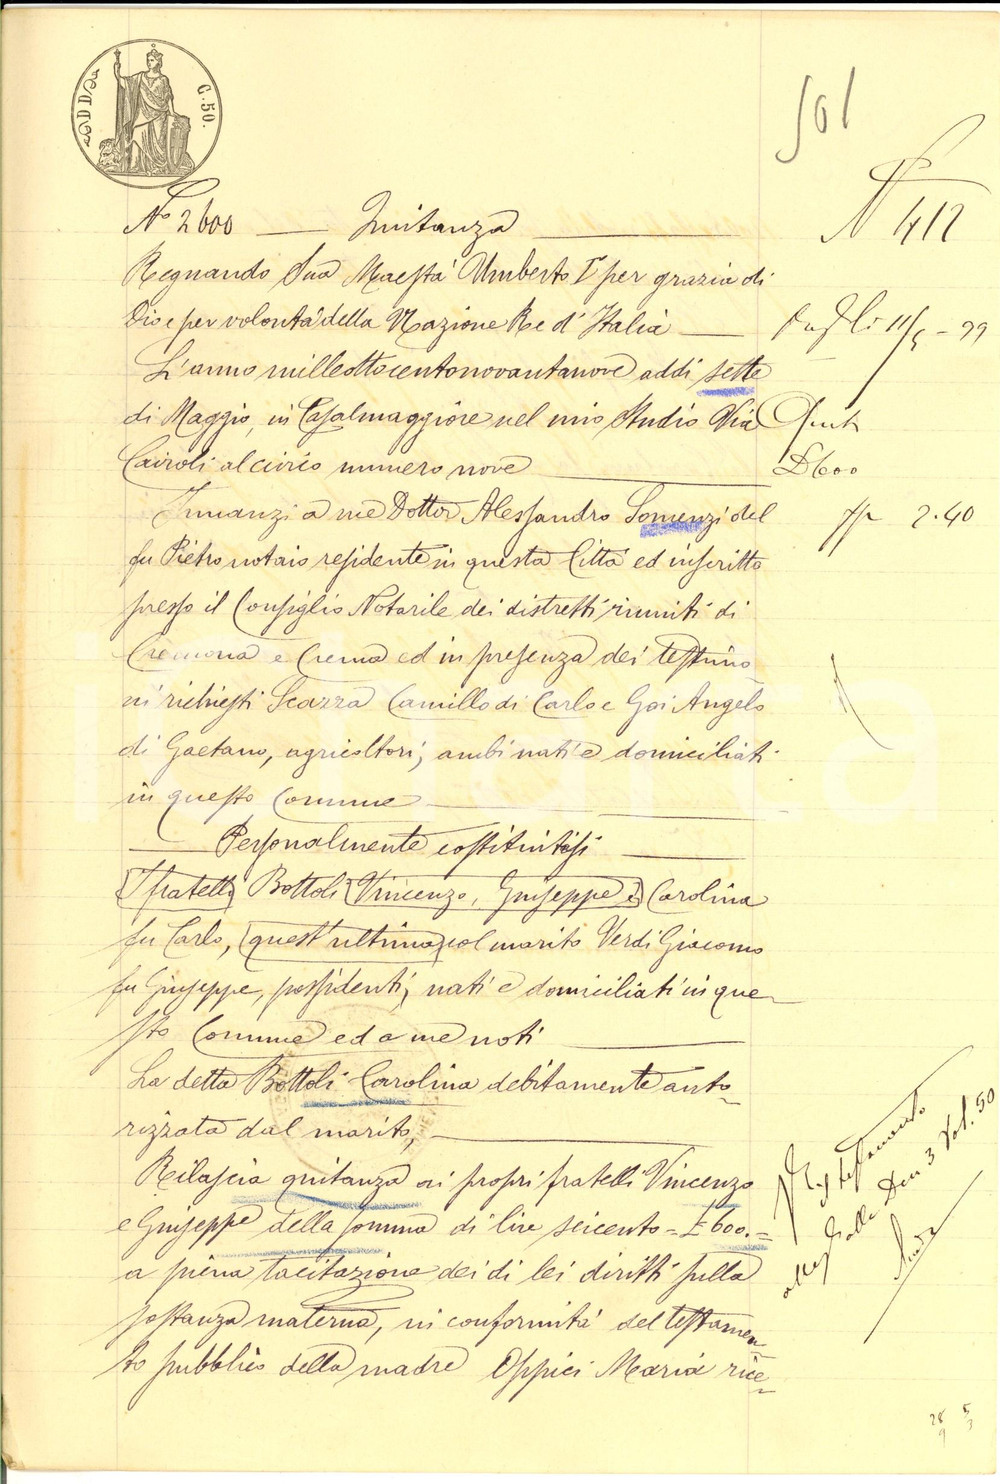 C. 50.
501
N° 2600 Quitanza
N 412
Regnando Sua Maestà Umberto I° per grazia di
Dio e per volontà della Nazione Re d'Italia
L'anno milleottocentonovantanove addì sette
di Maggio, in Casalmaggiore nel mio Studio Via
Cairoli al civico numero nove
11/5 - 99
Quit
£ 600
2.40
Innanzi a me Dottor Alessandro Somenzi del
fu Pietro notaio residente in questa Città ed inscritto
presso il Consiglio Notarile dei distretti riuniti di
Cremona e Crema ed in presenza dei testimo
ni richiesti Scazza Camillo di Carlo e Goi Angelo
di Gaetano, agricoltori, ambi nati e domiciliati
in questo Comune
Personalmente costituitisi
I fratelli Bottoli Vincenzo, Giuseppe e Carolina
fu Carlo, quest'ultima col marito Verdi Giacomo
fu Giuseppe, possidenti, nati e domiciliati in que
sto Comune ed a me noti
La detta Bottoli Carolina debitamente auto
rizzata dal marito,
Rilascia quitanza ai propri fratelli Vincenzo
e Giuseppe della somma di lire seicento = £ 600. =
a piena tacitazione dei di lei diritti sulla
sostanza materna, in conformità del testamen
to pubblico della madre Oppici Maria rice
testamento
3 Vol. 50
28 5
9 3